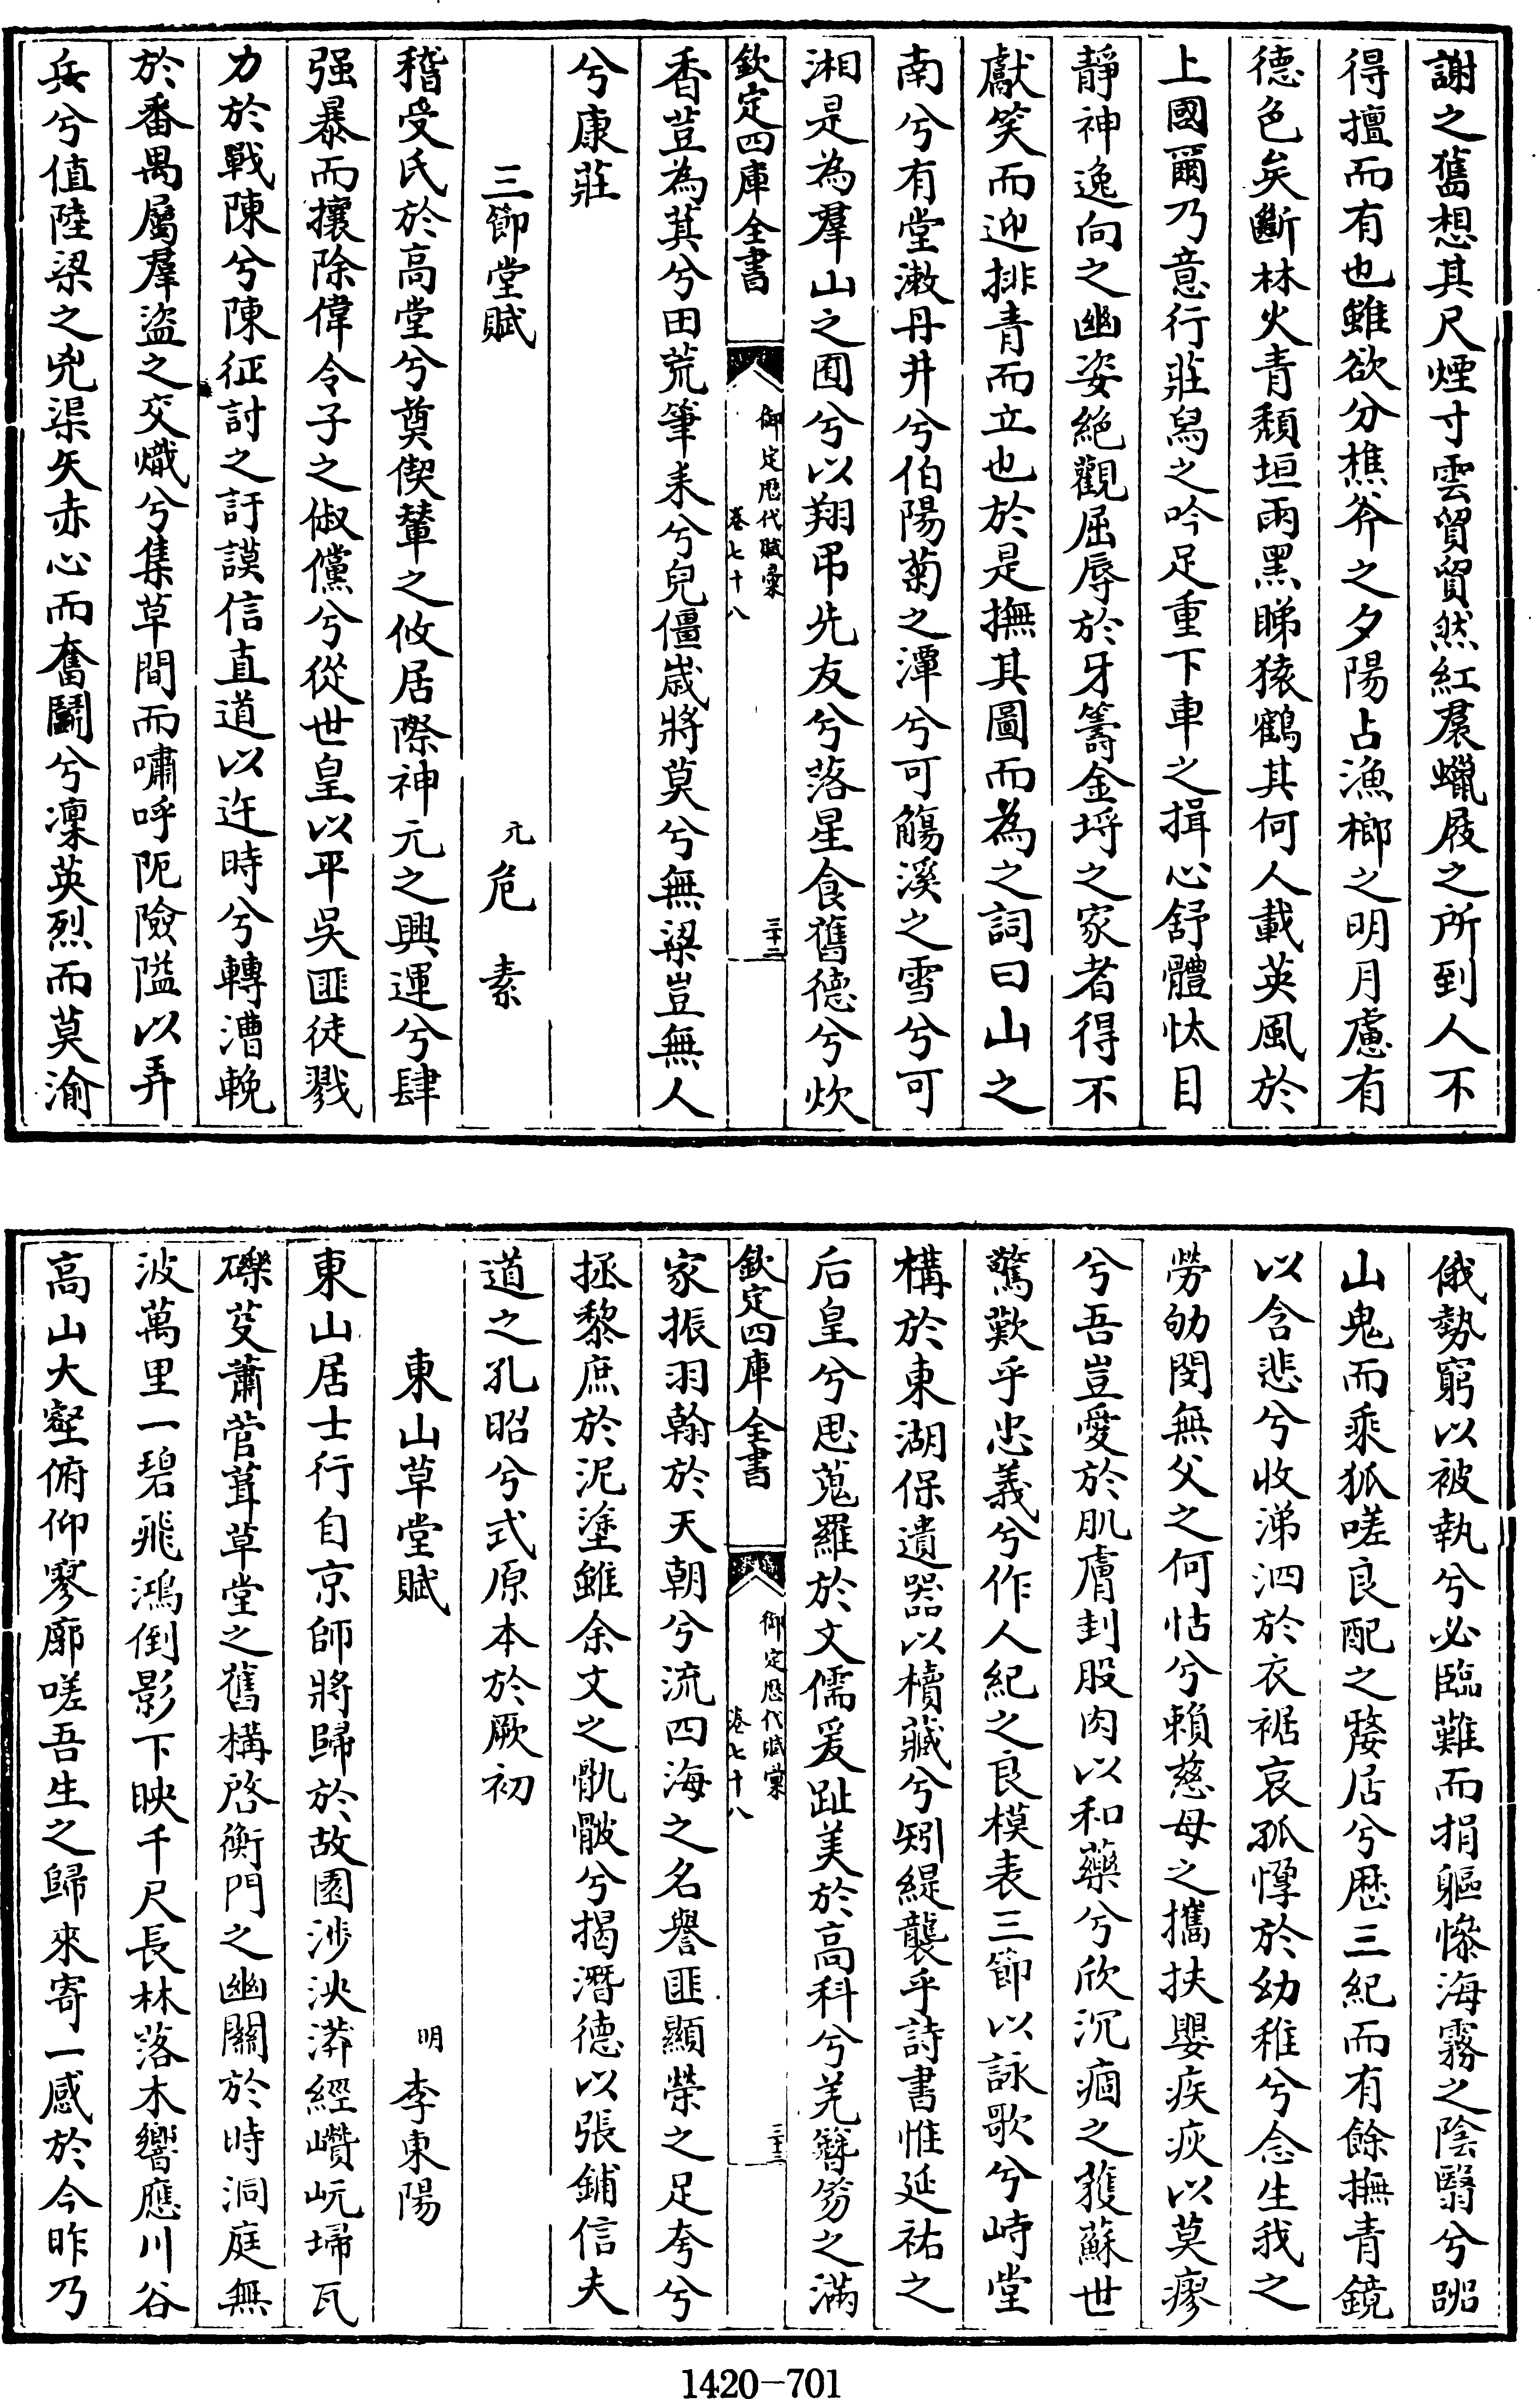 謝之舊想其尺煙寸雲貿貿然紅裙蠟屐之所到人不
得擅而有也雖欲分樵斧之夕陽占漁榔之明月慮有
德色矣斷林火青頽垣雨黑睇猿鶴其何人載英風於
上國爾乃意行莊舄之吟足重下車之揖心舒體忲目
靜神逸向之幽姿絶觀屈辱於牙籌金埒之家者得不
獻笑而迎排青而立也於是撫其圖而為之詞曰山之
南兮有堂漱丹井兮伯陽菊之潭兮可觴溪之雪兮可
湘是為羣山之囿兮以翔弔先友兮落星食舊德兮炊
欽定四庫全書
御定歴代賦彙
卷七十八
三十二
香荳為萁兮田荒筆耒兮兒僵嵗將莫兮無梁豈無人
兮康莊
三節堂賦
元 危素
稽受氏於高堂兮奠偰輦之攸居際神元之興運兮肆
强暴而攘除偉令子之俶儻兮從世皇以平吳匪徒戮
力於戰陳兮陳征討之訏謨信直道以迕時兮轉漕輓
於番禺屬羣盜之交熾兮集草間而嘯呼阨險隘以弄
兵兮值陸梁之兇渠矢赤心而奮鬭兮凜英烈而莫渝
俄勢窮以被執兮必臨難而捐軀慘海霧之陰翳兮號
山鬼而乘狐嗟良配之嫠居兮歴三紀而有餘撫青鏡
以含悲兮收涕泗於衣裾哀孤惸於幼稚兮念生我之
勞劬閔無父之何怙兮賴慈母之攜扶嬰疾疢以莫瘳
兮吾豈愛於肌膚刲股肉以和藥兮欣沉痼之獲蘇世
驚歎乎忠義兮作人紀之良模表三節以詠歌兮峙堂
構於東湖保遺器以櫝藏兮矧緹襲乎詩書惟延祐之
后皇兮思蒐羅於文儒爰趾美於高科兮羌簪笏之滿
欽定四庫全書
御定歴代賦彙
卷七十八
三十三
家振羽翰於天朝兮流四海之名譽匪顯榮之足夸兮
拯黎庶於泥塗雖余文之骫骳兮揭潛德以張鋪信夫
道之孔昭兮式原本於厥初
東山草堂賦
明 李東陽
東山居士行自京師將歸於故園渉泱漭經巑岏埽瓦
礫芟蕭菅葺草堂之舊構啓衡門之幽關於時洞庭無
波萬里一碧飛鴻倒影下映千尺長林落木響應川谷
高山大壑俯仰寥廓嗟吾生之歸來寄一感於今昨乃
1420-701